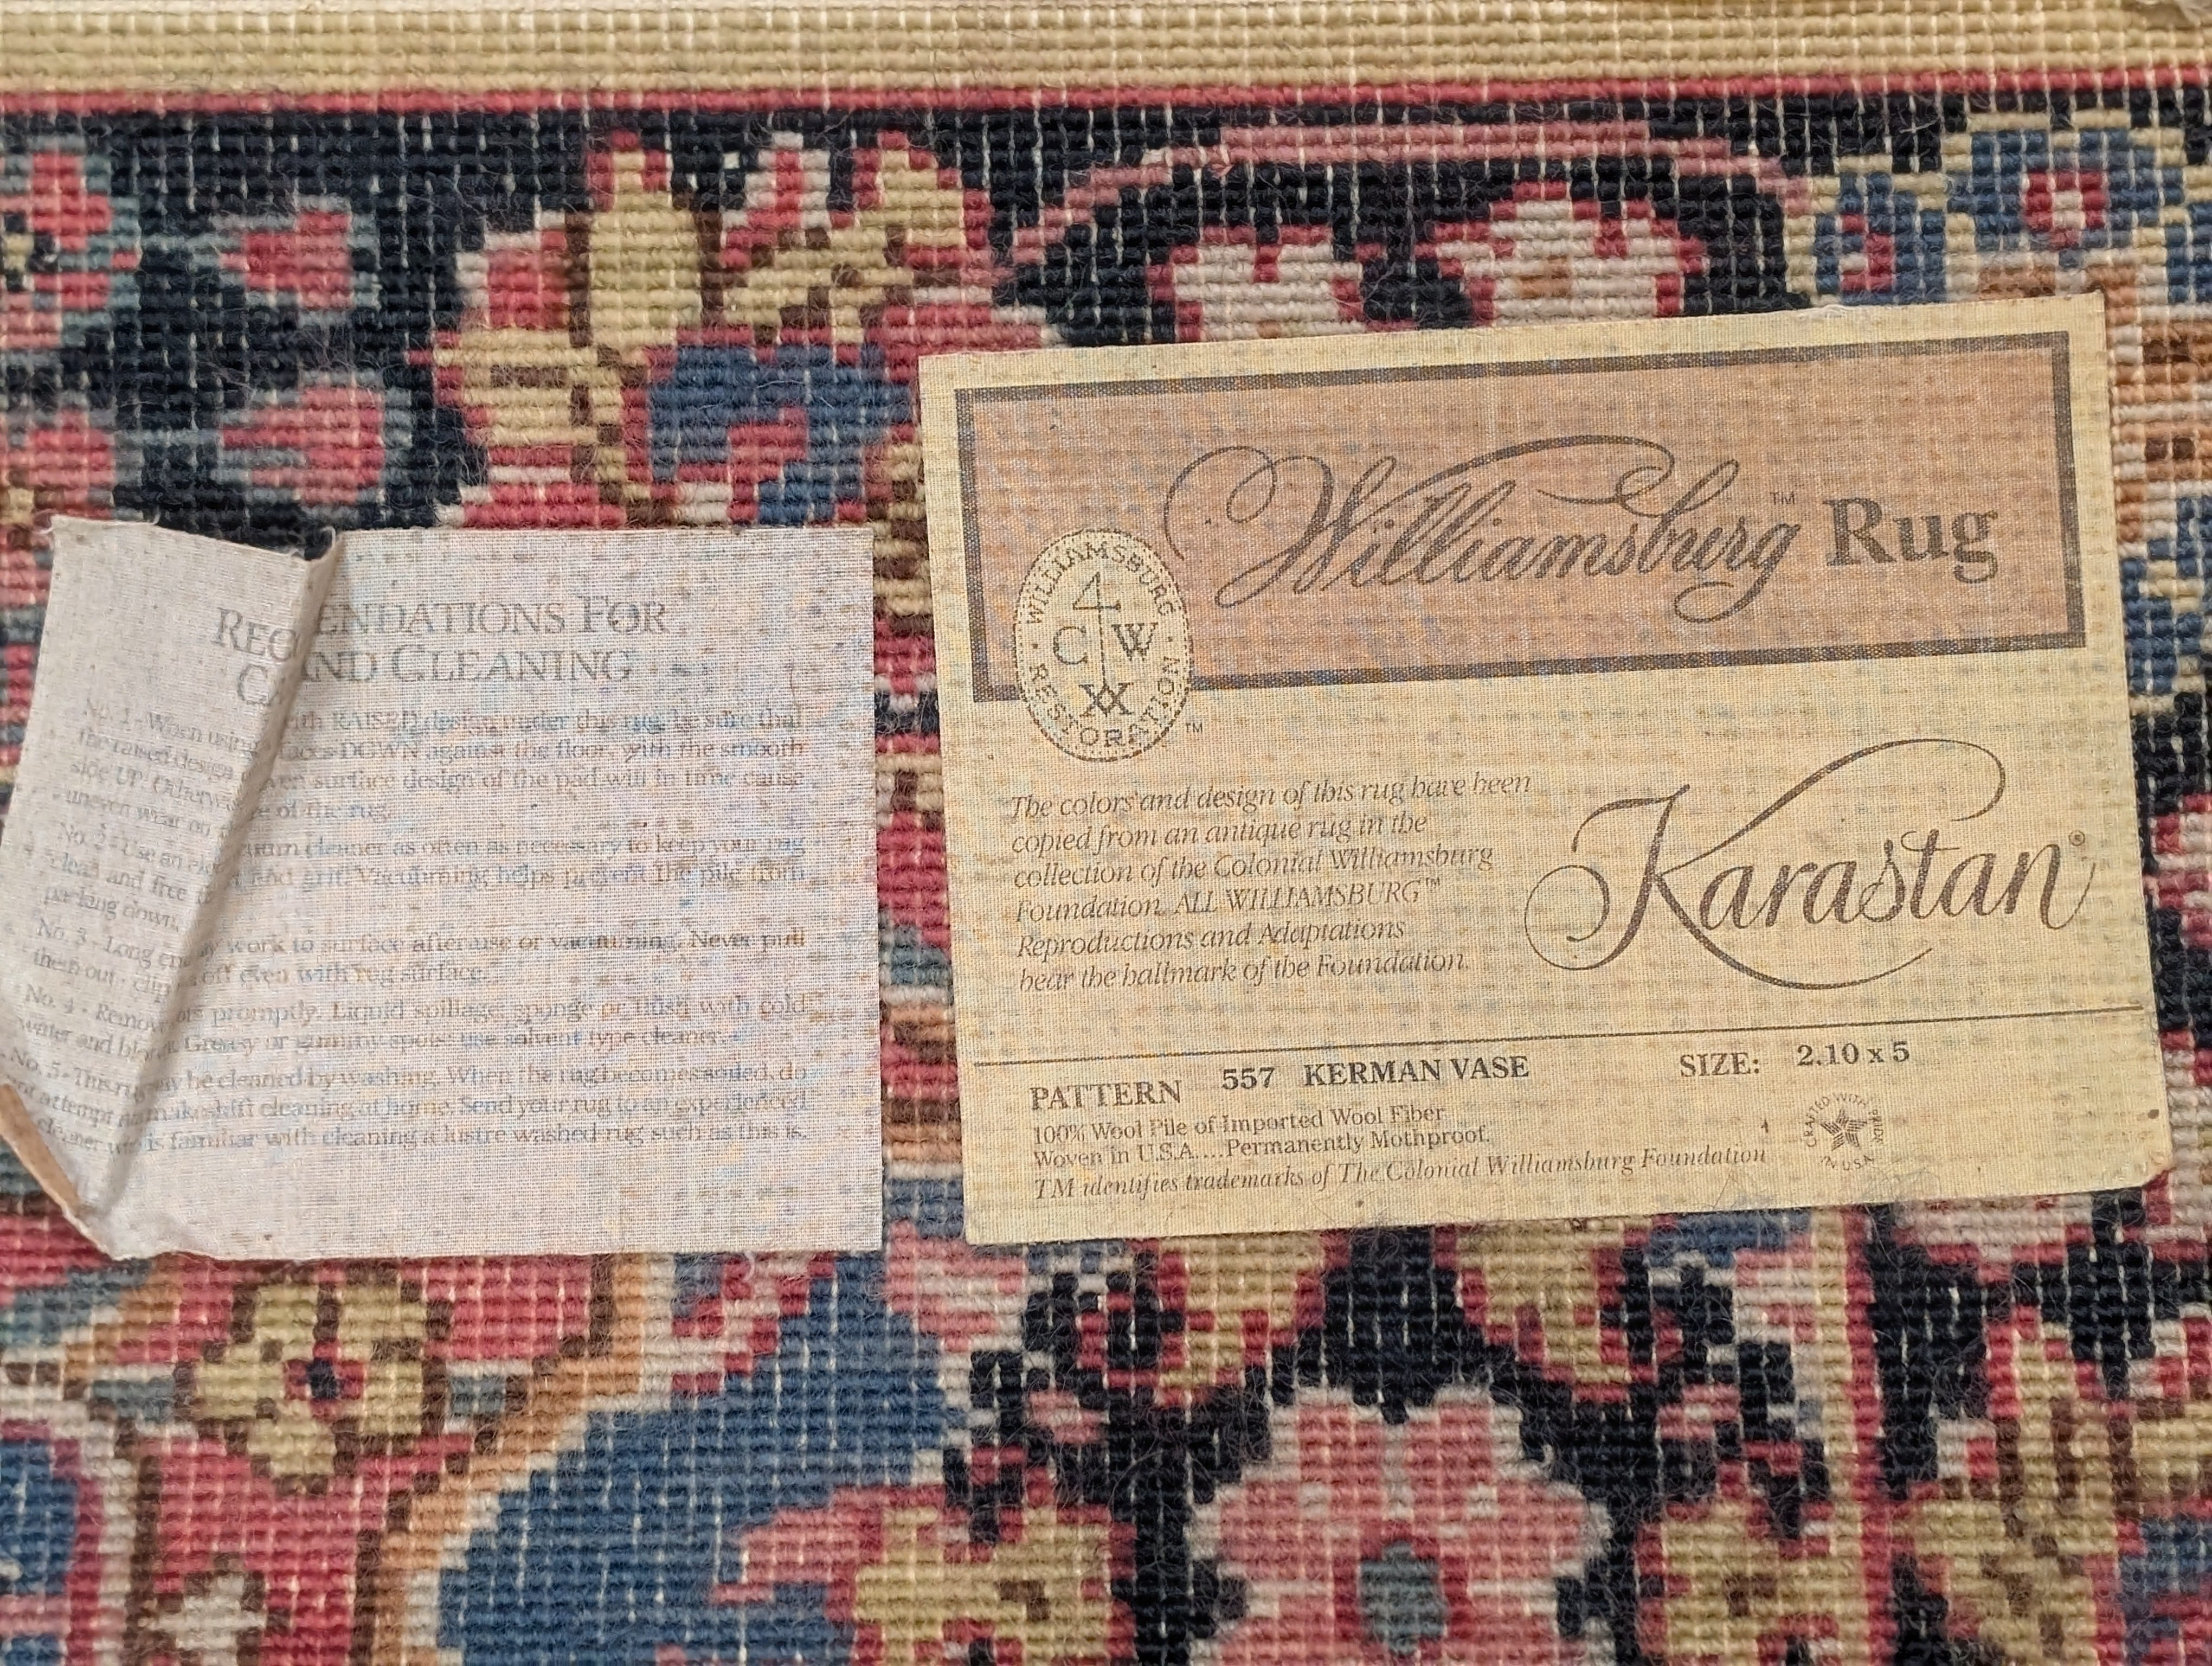 RECOMMENDATIONS FOR
CARE AND CLEANING
No. 1 - When using with RAISED design under this rug, be sure that
the raised design faces DOWN against the floor, with the smooth
side UP. Otherwise surface design of the pad will in time cause
uneven wear on of the rug.
No. 2 - Use an cleaner as often as necessary to keep your rug
clean and free and grit. Vacuuming helps prevent the pile from
packing down.
No. 3 - Long work to surface after use or vacuuming. Never pull
them out - clip off even with rug surface.
No. 4 - Remove promptly. Liquid spillage, sponge or flush with cold
water and blot. Greasy or gummy spots: use solvent type cleaner.
No. 5 - This rug may be cleaned by washing. When the rug becomes soiled, do
not attempt makeshift cleaning at home. Send your rug to an experienced
cleaner who is familiar with cleaning a lustre washed rug such as this is.
Williamsburg™ Rug
WILLIAMSBURG · RESTORATION ·
4
C W
X ™
The colors and design of this rug have been
copied from an antique rug in the
collection of the Colonial Williamsburg
Foundation. ALL WILLIAMSBURG™
Reproductions and Adaptations
bear the hallmark of the Foundation.
Karastan®
PATTERN 557 KERMAN VASE SIZE: 2.10 x 5
100% Wool Pile of Imported Wool Fiber
Woven in U.S.A....Permanently Mothproof.
TM identifies trademarks of The Colonial Williamsburg Foundation
CRAFTED WITH PRIDE IN USA